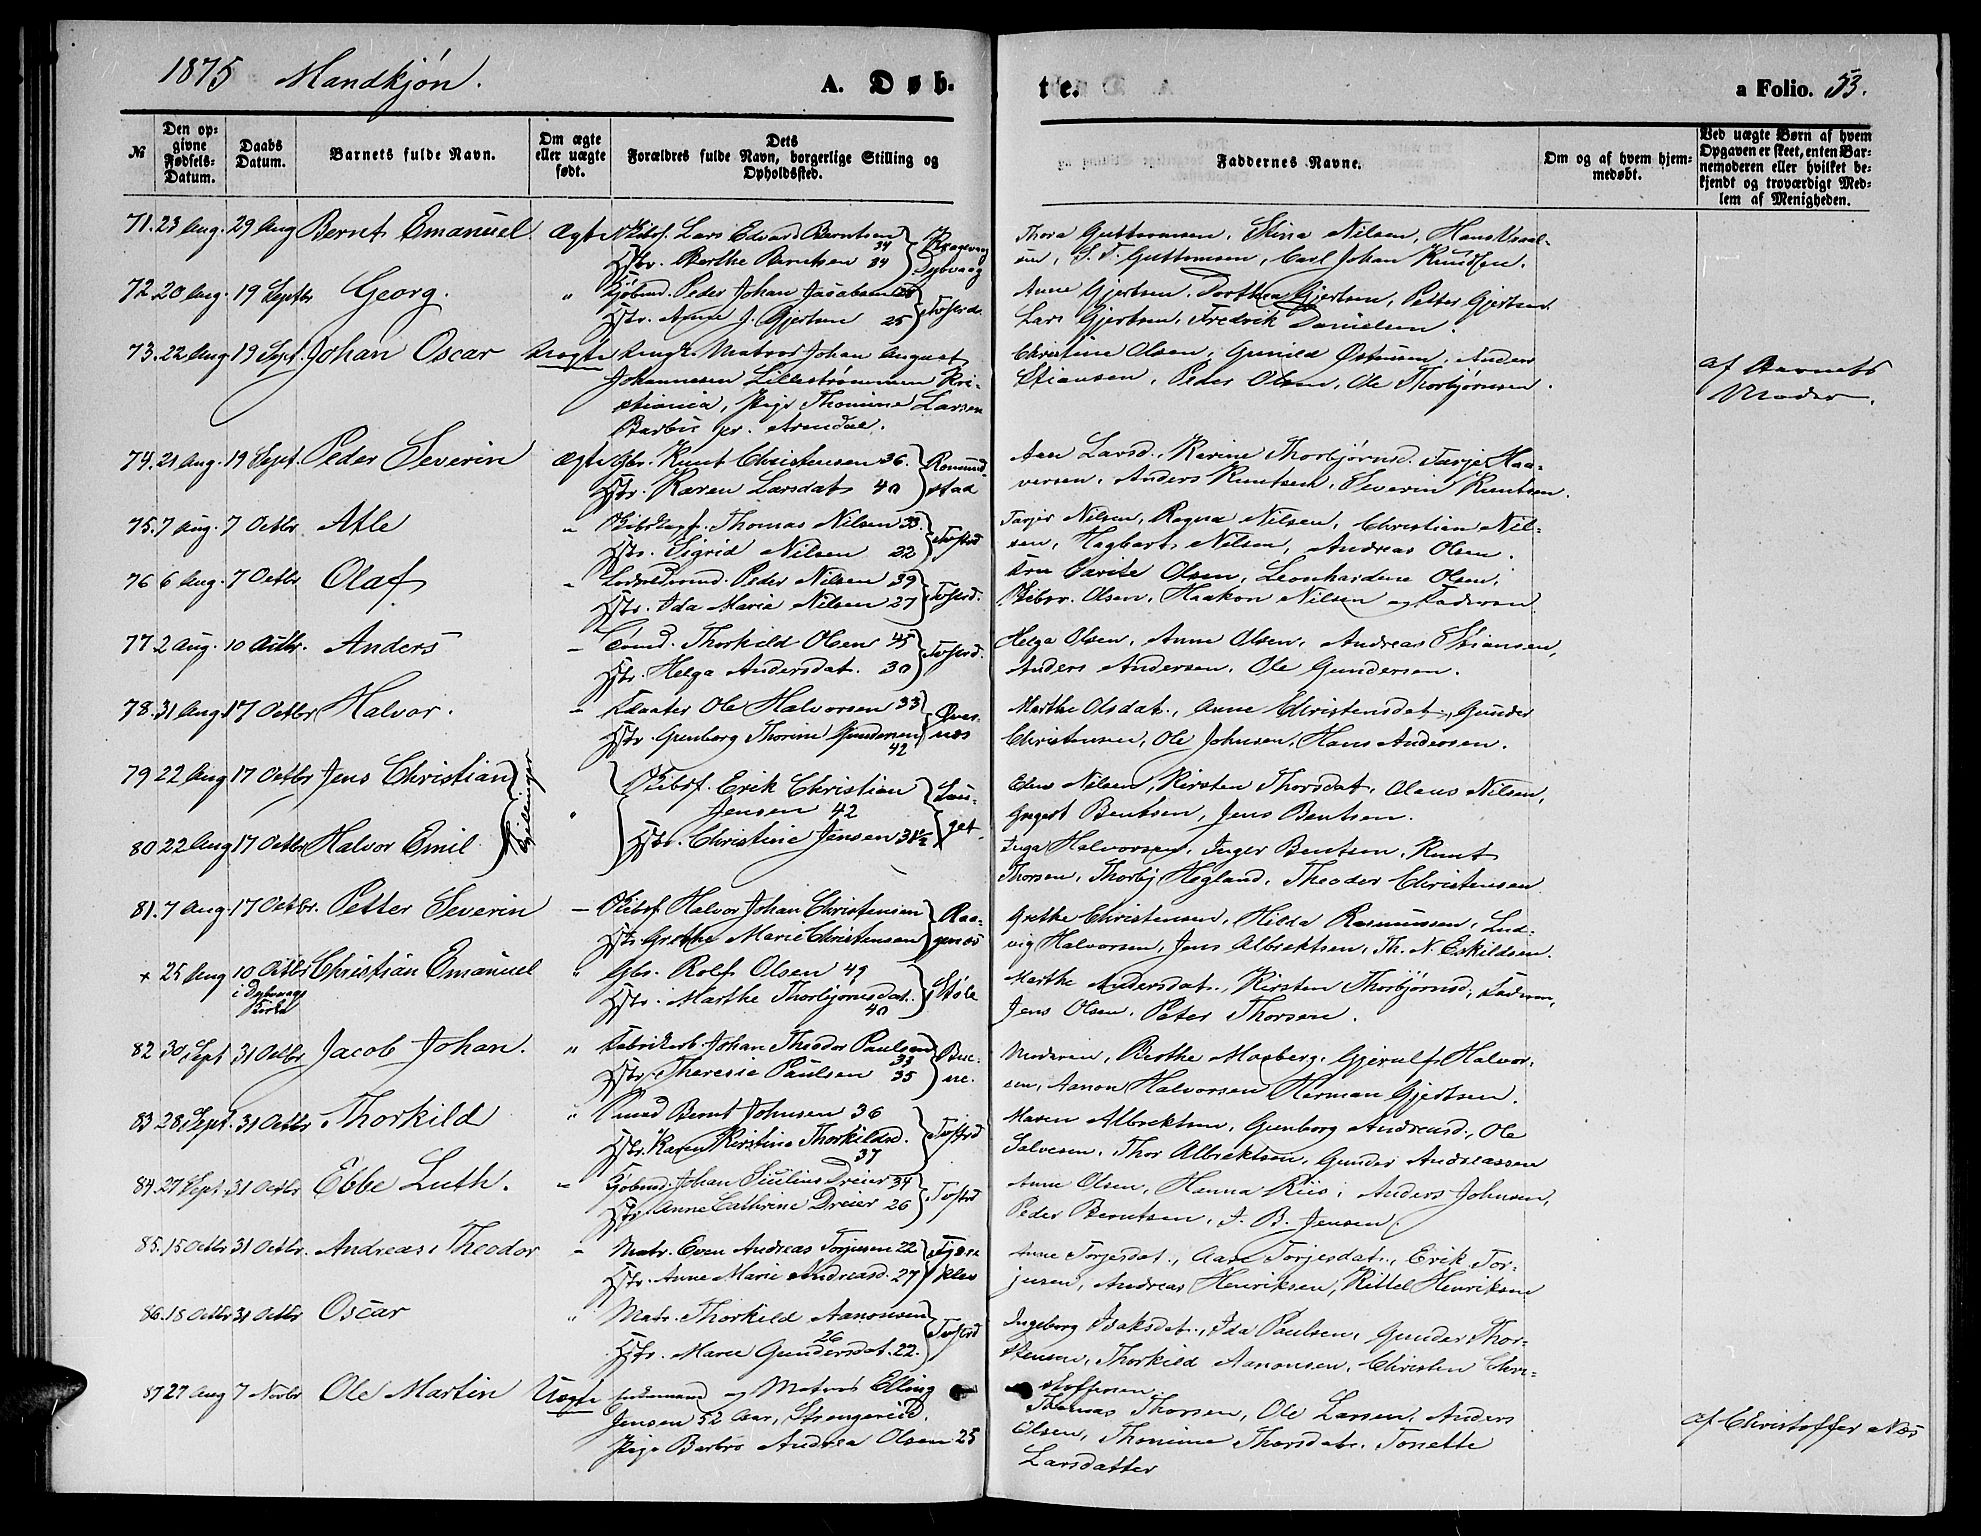 1875 Mandkjøn. A. Døb-
te. a Folio. 53.
№
Den op-
givne
Fødsels-
Datum.
Daabs
Datum.
Barnets fulde Navn.
Om ægte
eller uægte
født.
Dets
Forældres fulde Navn, borgerlige Stilling og
Opholdssted.
Faddernes Navne.
Om og af hvem hjem-
medøbt.
Ved uægte Børn af hvem
Opgaven er skeet, enten Bar-
nemoderen eller hvilket be-
kjendt og troværdigt Med-
lem af Menigheden.
71. 23 Aug. 29 Aug Bernt Emanuel Ægte Skibsf. Lars Edvard Berntsen 34
Hstr. Berthe Berntsen 34 Dybvaag
Thora Guttormsen, Stina Nilsen, Hans
S. T. Guttormsen, Carl Johan Knudsen.
72. 20 Aug. 19 Septbr Georg. " Peder Johan Jacobsen
Hstr. Anne J. Gjertsen 25 Tvstrd.
Anne Gjertsen, Dorthea Gjertsen, Petter Gjertsen
Lars Gjertsen, Fredrik Danielsen.
73. 22 Aug. 19 Sept. Johan Oscar Uægte Ungk. Matros Johan August
Johannesen Lillestrømmen Kri-
stiania, Pige Thomine Larsen
Barbu pr. Arendal.
Christine Olsen, Gunild Østensen, Anders
Stiansen, Peder Olsen, Ole Thorbjørnsen.
af Barnets
Moder.
74. 21 Aug. 19 Sept. Peder Severin Ægte Gbr. Knut Christensen 36.
Hstr. Karen Larsdat. 40 Romund-
stad
Aase Larsd., Karine Thorbjørnsd. Tarjei Haa-
versen, Anders Knutsen, Severin Knutsen.
75. 7 Aug. 7 Octbr Atle " Skibskapt. Thomas Nilsen 33.
Hstr. Sigrid Nilsen 22 Tvstrd
Tarjer Nilsen, Ragna Nilsen, Christian Nil-
sen, Hagbart Nilsen, Andreas Olsen.
76 6 Aug. 7 Octbr Olaf " Peder Nilsen 39
Hstr. Ida Maria Nilsen 27 Tvstrd.
Fru Olsen, Leonhardene Olsen,
Skibsr. Olsen, Haakon Nilsen og Faderen
77. 2 Aug. 10 Octbr. Anders " Sømd. Thorkild Olsen 45
Hstr. Helga Andersdat. 30 Tvstrd.
Helga Olsen, Anne Olsen, Andreas Stiansen,
Anders Andersen, Ole Gundersen.
78. 31 Aug. 17 Octbr Halvor. " Ole Halvorsen 33
Hstr. Gunborg Thorine Gundersen 42 Øves-
næs
Marthe Olsdat., Anne Christensdat., Gunder
Christensen, Ole Johnsen, Hans Andersen.
79 22 Aug 17 Octbr Jens Christian Tvillinger
" Skibsf. Erik Christian
Jensen 42
Hstr. Christine Jensen 31½ Lau-
get.
Elene Nilsen, Kirsten Thorsdat., Olaus Nilsen,
Bentsen, Jens Bentsen.
80 22 Aug 17 Octbr Halvor Emil
Inga Halvorsen, Inger Bentsen, Knut
Thorsen, Thorbj Hegland, Theodor Christensen
81. 7 Aug. 17 Octbr. Petter Severin " Skibsf Halvor Johan Christensen
Hstr. Grethe Marie Christensen Raa-
genæs
Grethe Christensen, Hilda Rasmussen, Lud-
vig Halvorsen, Jens Albrektsen, Th. N. Eskildsen.
+ 25 Aug 10 Octbr Christian Emanuel " Gbr. Rolf Olsen 49
i Dybvaags
Kirke
Hstr. Marthe Thorbjørnsdat. 40 Støle
Marthe Andersdat., Kirsten Thorbjørnsd., Faderen,
Jens Olsen, Peter Thorsen.
82 30 Sept 31 Octbr Jacob Johan. " Johan Theodor Paulsen 33
Hstr. Theresie Paulsen 35
Moderen, Berthe Moxberg, Gjerulf Halvor-
sen, Aanon Halvorsen Herman Gjertsen.
83 28 Sept. 31 Octbr Thorkild " Bernt Johnsen 36
Hstr. Karen Kirstine Thorkildsd. 37 Tvstrd
Maren Albrektsen, Gunborg Andreasd., Ole
Salvesen, Thor Albrektsen, Gunder Andreassen
84 27 Sept. 31 Octbr Ebbe Luth. " Johan Julius Dreier 34
Hstr Anne Cathrine Dreier 26 Tvstrd
Anne Olsen, Hanna Riis, Anders Johnsen,
Peder Berntsen, J. B. Jensen.
85. 15 Octbr 31 Octbr. Andreas Theodor " Matr. Even Andreas Torjusen 22
Hstr. Anne Marie Andreasd. 27
Anne Torjesdat., Aase Torjesdat., Erik Tor-
jusen, Andreas Henriksen, Kittel Henriksen
86. 18 Octbr 31 Octbr Oscar " Matr. Thorkild Aanonsen 26
Hstr. Maren Gundersdat. 22. Tvstrd
Ingeborg Isaksdat., Ida Paulsen, Gunder Thor-
stensen, Thorkild Aanonsen, Christen Chri-
stoffersen
87 27 Aug 7 Novbr Ole Martin Uægte og Matros Elling
Jensen 52 Aar, Strengereid.
Pige Barbro Andrea Olsen 25
Thomas Thorsen, Ole Larsen, Anders
Olsen, Thomine Thorsdat., Tonette
Larsdatter
af Christoffer Næs